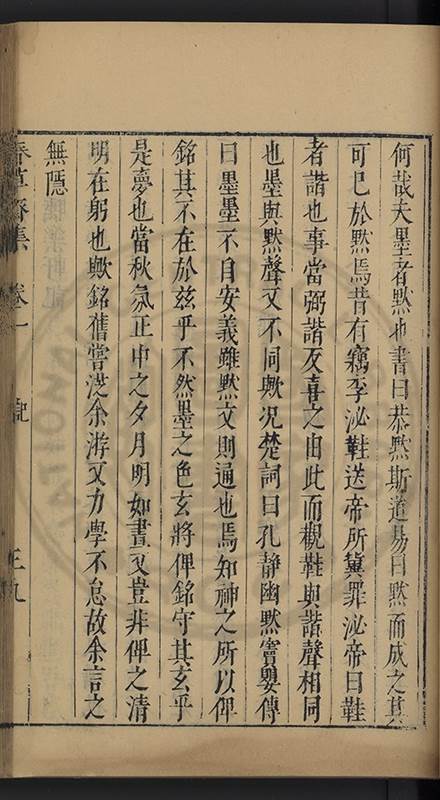 何哉夫墨者默也書曰恭默斯道易曰默而成之其
可已於默焉昔有竊李泌鞋送帝所冀罪泌帝曰鞋
者諧也事當弼諧反喜之由此而觀鞋與諧聲相同
也墨與黙聲文不同歟况楚詞曰孔静幽黙竇嬰傳
曰墨墨不自安義雖黙文則通也焉知神之所以俾
銘其不在於兹乎不然墨之色玄將俾銘守其玄乎
是夢也當秋氛正中之夕月明如晝又豈非俾之清
明在躬也歟銘舊嘗從余游又力學不怠故余言之
無隱
春草齋集 卷一 記 三九